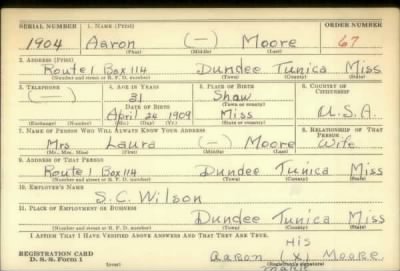 SERIAL NUMBER 1. NAME (Print) ORDER NUMBER
1904 Aaron (—) Moore 67
(First) (Middle) (Last)
2. ADDRESS (Print)
Route 1 Box 114 Dundee Tunica Miss
(Number and street or R. F. D. number) (Town) (County) (State)
3. TELEPHONE 4. AGE IN YEARS 5. PLACE OF BIRTH 6. COUNTRY OF CITIZENSHIP
(—) 31 Shaw
DATE OF BIRTH (Town or county)
April 24 1909 Miss U.S.A.
(Exchange) (Number) (Mo.) (Day) (Yr.) (State or country)
7. NAME OF PERSON WHO WILL ALWAYS KNOW YOUR ADDRESS 8. RELATIONSHIP OF THAT PERSON
Mrs Laura (—) Moore Wife
(Mr., Mrs., Miss) (First) (Middle) (Last)
9. ADDRESS OF THAT PERSON
Route 1 Box 114 Dundee Tunica Miss
(Number and street or R. F. D. number) (Town) (County) (State)
10. EMPLOYER'S NAME
S.C. Wilson
11. PLACE OF EMPLOYMENT OR BUSINESS
Dundee Tunica Miss
(Number and street or R. F. D. number) (Town) (County) (State)
I AFFIRM THAT I HAVE VERIFIED ABOVE ANSWERS AND THAT THEY ARE TRUE.
His
REGISTRATION CARD Aaron (X) Moore
D. S. S. Form 1 (over) (Registrant's signature)
Mark